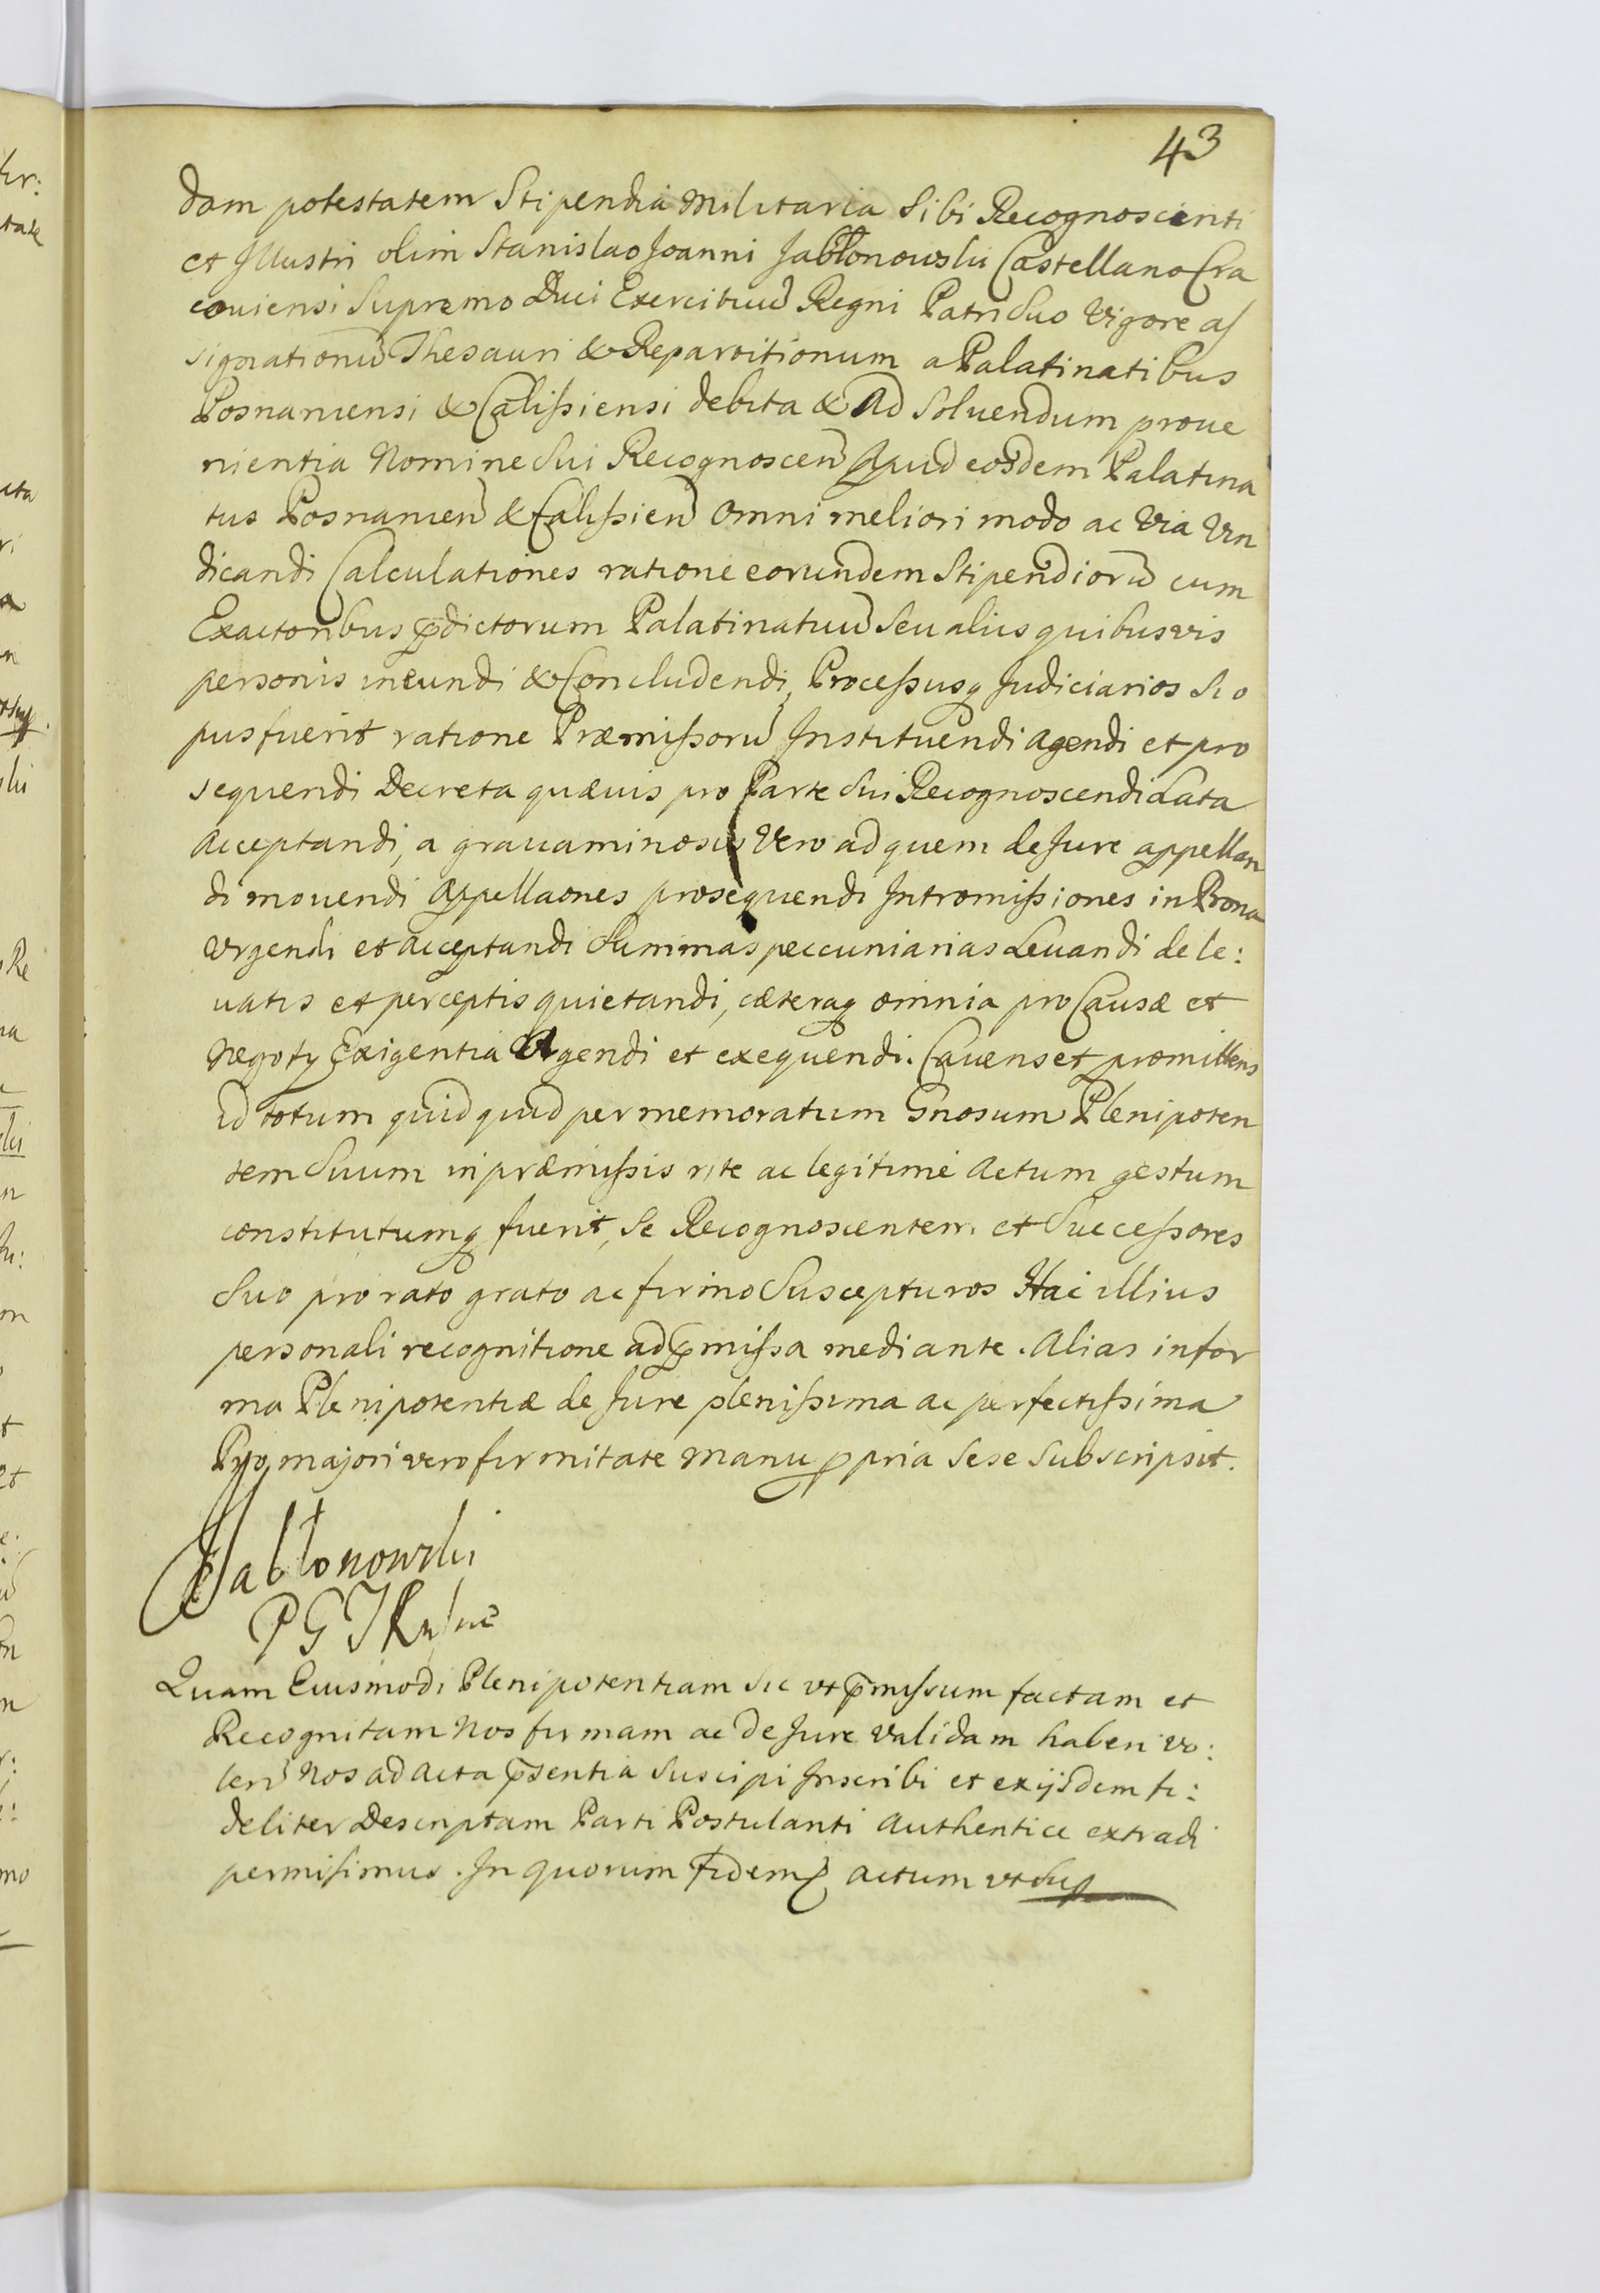 43
dam potestatem Stipendia Militaria Sibi Recognoscenti
et Illustri olim Stanislao Joanni Jabłonowski Castellano Cra
coviensi Supremo Duci Exercituũ Regni Patri Suo Vigore as
signationũ Thesauri & Repartitionum a Palatinatibus
Posnaniensi & Calissiensi debita & Ad Solvendum prove
nientia Nomine Sui Recognoscen̄ Apud eosdem Palatina
tus Posnanien̄ & Calissien̄ Omni meliori modo ac Via Vin
dicandi Calculationes ratione eorundem Stipendiorũ cum
Exactoribus p̱dictorum Palatinatuũ Seu aliis quibusvis
personis ineundi & Concludendi, Processusq Judiciarios Si o
pus fuerit ratione Præmissorũ Instituendi Agendi et pro
sequendi Decreta quævis pro Parte Sui Recognoscendi Lata
Acceptandi, a gravaminosis Vero ad quem de Jure appellan
di movendi Appellaones prosequendi Intromissiones in Bona
Urgendi et Acceptandi Summas peccuniarias Levandi de le:
vatis et perceptis quietandi, cæteraq omnia pro Causæ et
Negoty Exigentia Agendi et exequendi. Cavens et promittens
id totum quidquid per memoratum Gnosum Plenipoten
tem Suum in præmissis rite ac legitime Actum gestum
constitutumq fuerit, Se Recognoscentem et Successores
Suo pro rato grato ac firmo Suscepturos Hac illius
personali recognitione ad p̱missa mediante. Alias in for
ma Plenipotentiæ de Jure plenissima ac perfectissima
Pro majori vero firmitate Manu ppria Sese Subscripsit.
Jabłonowski
P G I
Quam Eiusmodi Plenipotentiam Sic ut p̄missum factam et
Recognitam Nos firmam ac de Jure Validam haberi vo:
len̄ Nos ad Acta p̄sentia Suscipi Inscribi et ex ijsdem fi:
deliter Descriptam Parti Postulanti Authentice extradi
permisimus. In quorum fidem Actum ut Sup